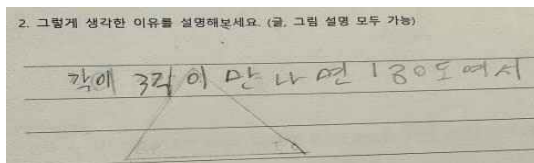 2. 그렇게 생각한 이유를 설명해보세요. (글, 그림 설명 모두 가능)
각에 3각이 만나면 180도여서